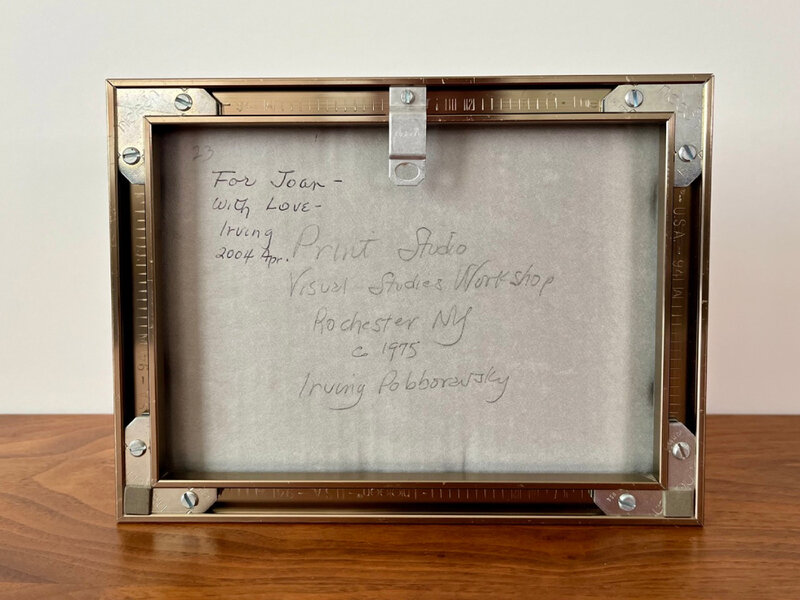 23
For Joan -
With Love -
Irving
2004 Apr.
Print Studio
Visual Studies Workshop
Rochester NY
c 1975
Irving Pobboravsky
USA - 94